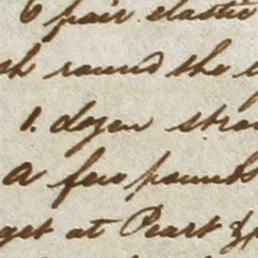 6 pair elastic
round the
1. dozen
a few pounds
get at Peart &